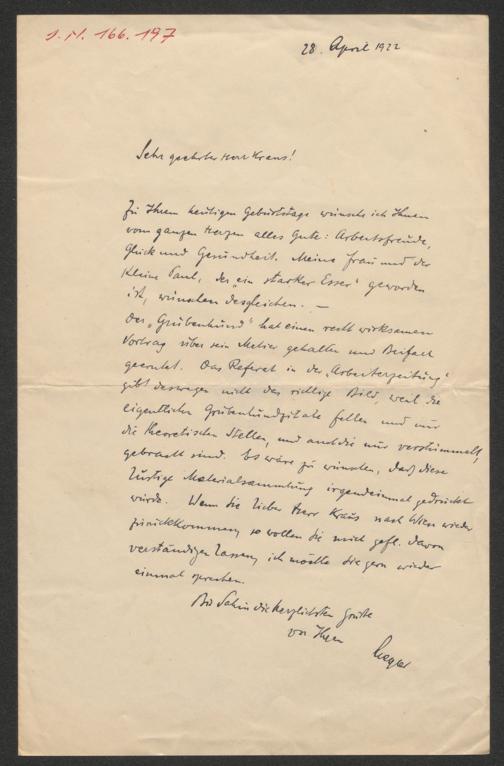 J.N. 166.197
28. April 1922
Sehr geehrter Herr Kraus!
Zu Ihrem heutigen Geburtstage wünsche ich Ihnen
vom ganzen Herzen alles Gute: Arbeitsfreude,
Glück und Gesundheit. Meine Frau und der
kleine Paul, der „ein starker Esser“ geworden
ist, wünschen desgleichen. —
Der „Grubenhund“ hat einen recht wirksamen
Vortrag über sein Metier gehalten und Beifall
geerntet. Das Referat in der „Arbeiterzeitung“
gibt deswegen nicht das richtige Bild, weil die
eigentlichen Grubenhundzitate fehlen und nur
die theoretischen Stellen, und auch die nur verstümmelt,
gebracht sind. Es wäre zu wünschen, daß diese
lustige Materialsammlung irgendeinmal gedruckt
würde. Wenn Sie lieber Herr Kraus nach Wien wieder
zurückkommen, so wollen Sie mich gefl. davon
verständigen lassen, ich möchte Sie gern wieder
einmal sprechen.
Bis dahin die herzlichsten Grüße
von Ihrem